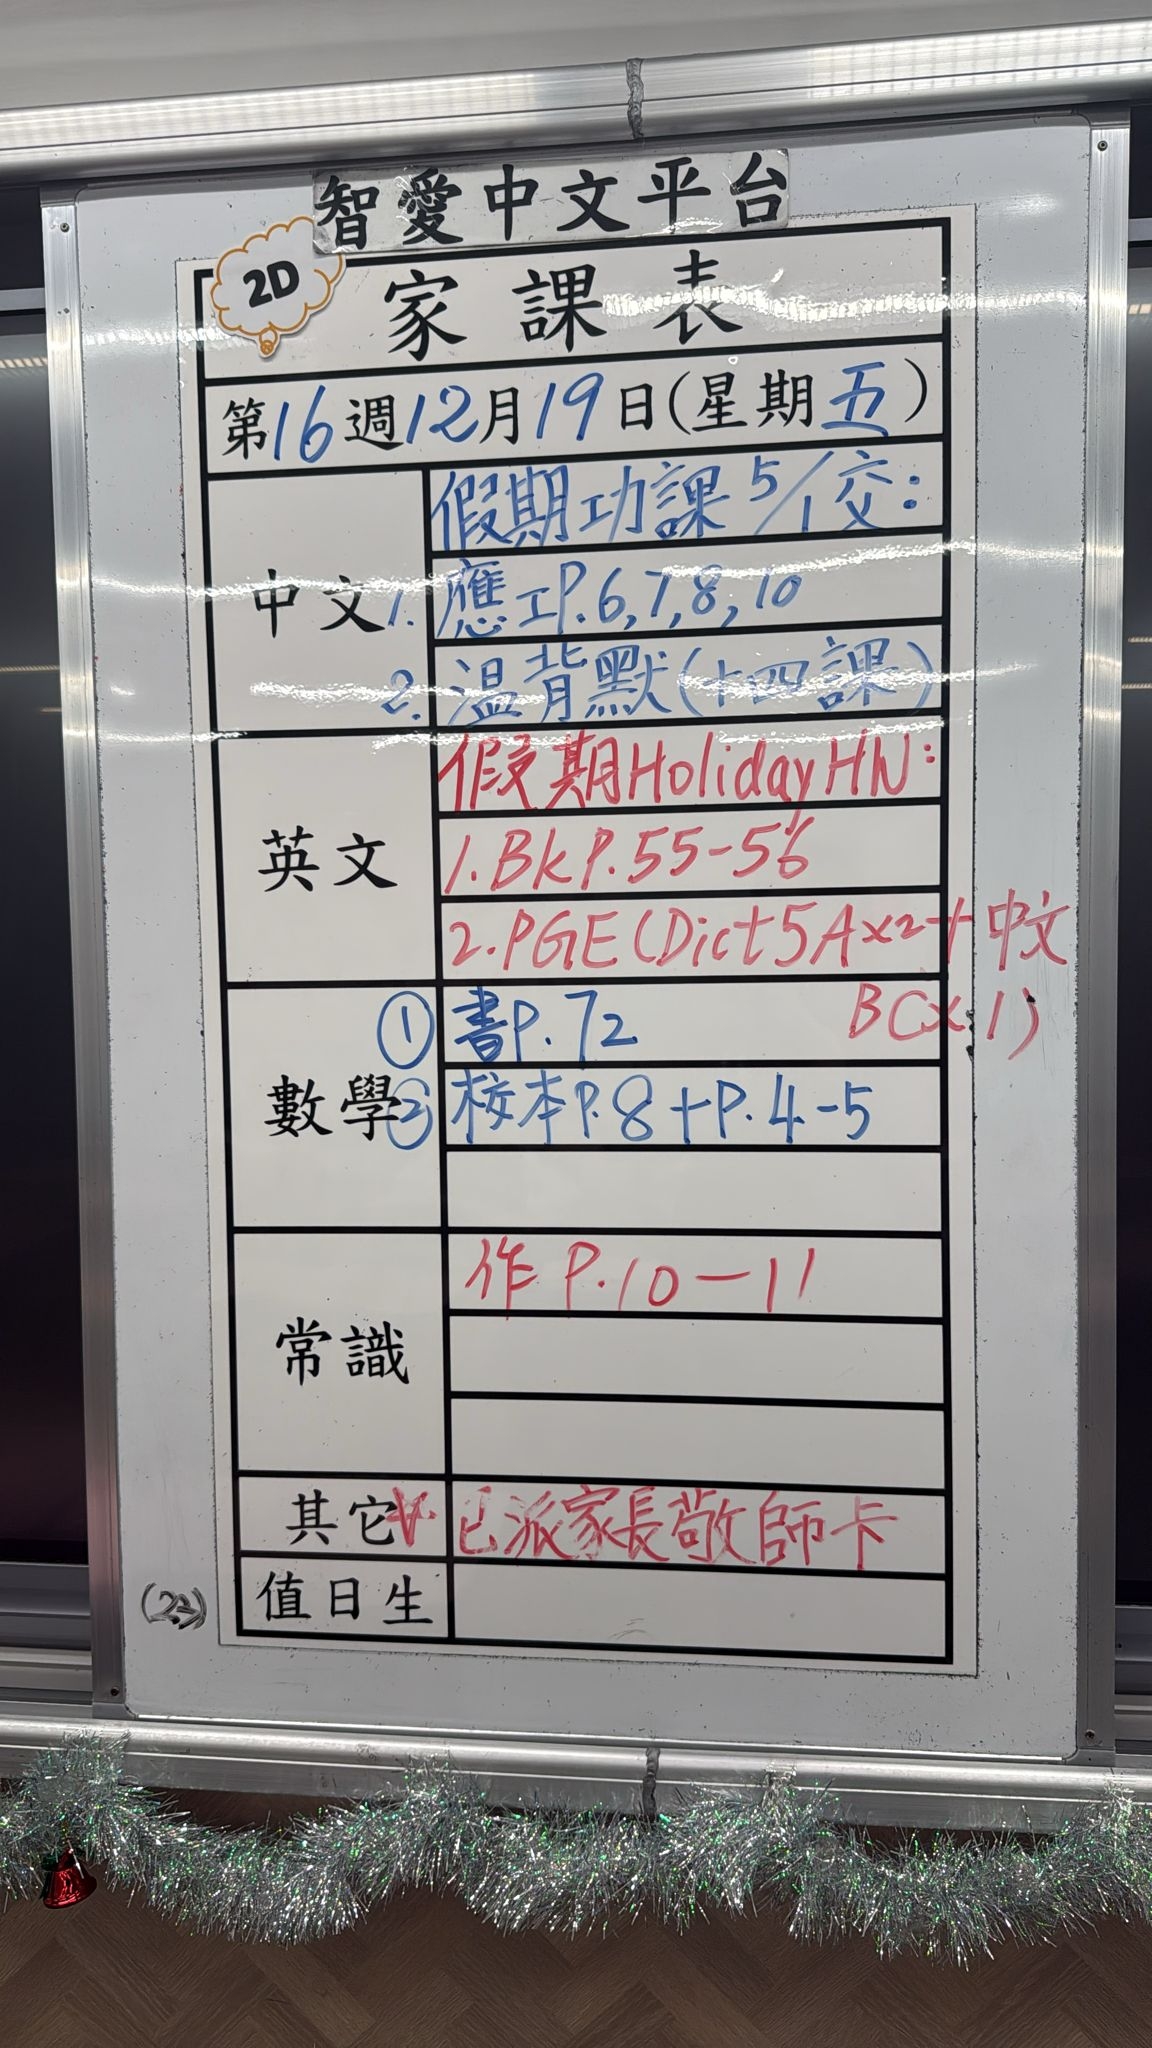 智愛中文平台
2D
家課表
第16週12月19日(星期五)
中文
假期功課5/1交:
1. 應工P.6,7,8,10
2. 溫背默(十四課)
英文
假期Holiday HW:
1. Bk P.55-56
2. PGE (Dict 5A x2 + 中文
BC x1)
數學
① 書P.72
② 校本P.8+P.4-5
常識
作 P.10-11
其它
已派家長敬師卡
值日生